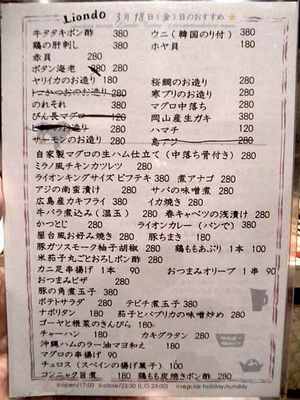 Liondo 3月18日(金)のおすすめ
牛タタキポン酢 380 ウニ(韓国のり付) 380
鶏の肝刺し 380 ホヤ貝 180
赤貝 280
ボタン海老 280
ヤリイカのお造り 180 桜鯛のお造り 280
お造り 280 寒ブリのお造り 280
のれそれ 380 マグロ中落ち 280
びん長マグロ 120 岡山産生ガキ 380
ハマチ 120
サーモンのお造り 280 島アジ 280
自家製マグロの生ハム仕立て(中落ち骨付き) 380
ミラノ風チキンカツレツ 380
ライオンキングサイズビフテキ 380 煮アナゴ 280
アジの南蛮漬け 280 サバの味噌煮 280
広島産カキフライ 380 イカ焼き 280
牛バラ煮込み(温玉) 280 春キャベツの浅漬け 280
かつとじ 280 ライオンカレー(パンで) 380
屋台風お好み焼き 280 豚ちまき 180
豚ガツスモーク柚子胡椒 280 鶏ももあぶり 1本 100
米茄子丸ごとおろしポン酢 280
カニ足串揚げ 1本 90 おつまみオリーブ 1串 90
おつまみピザ 280
豚の角煮玉子 380
ポテトサラダ 280 テビチ煮玉子 380
ナポリタン 180 茄子とバプリカの味噌炒め 280
ゴーヤと根菜のきんぴら 180
チャーハン 180 カキグラタン 280
沖縄ハムのラー油マヨ和え 180
マグロの串揚げ 90
チュロス(スペインの揚げ菓子) 180
コンニャク旨煮 180 鶏もも炭焼きポン酢 280
□open/17:00 □close/23:30 (L.O 23:00) □regular holiday/sunday